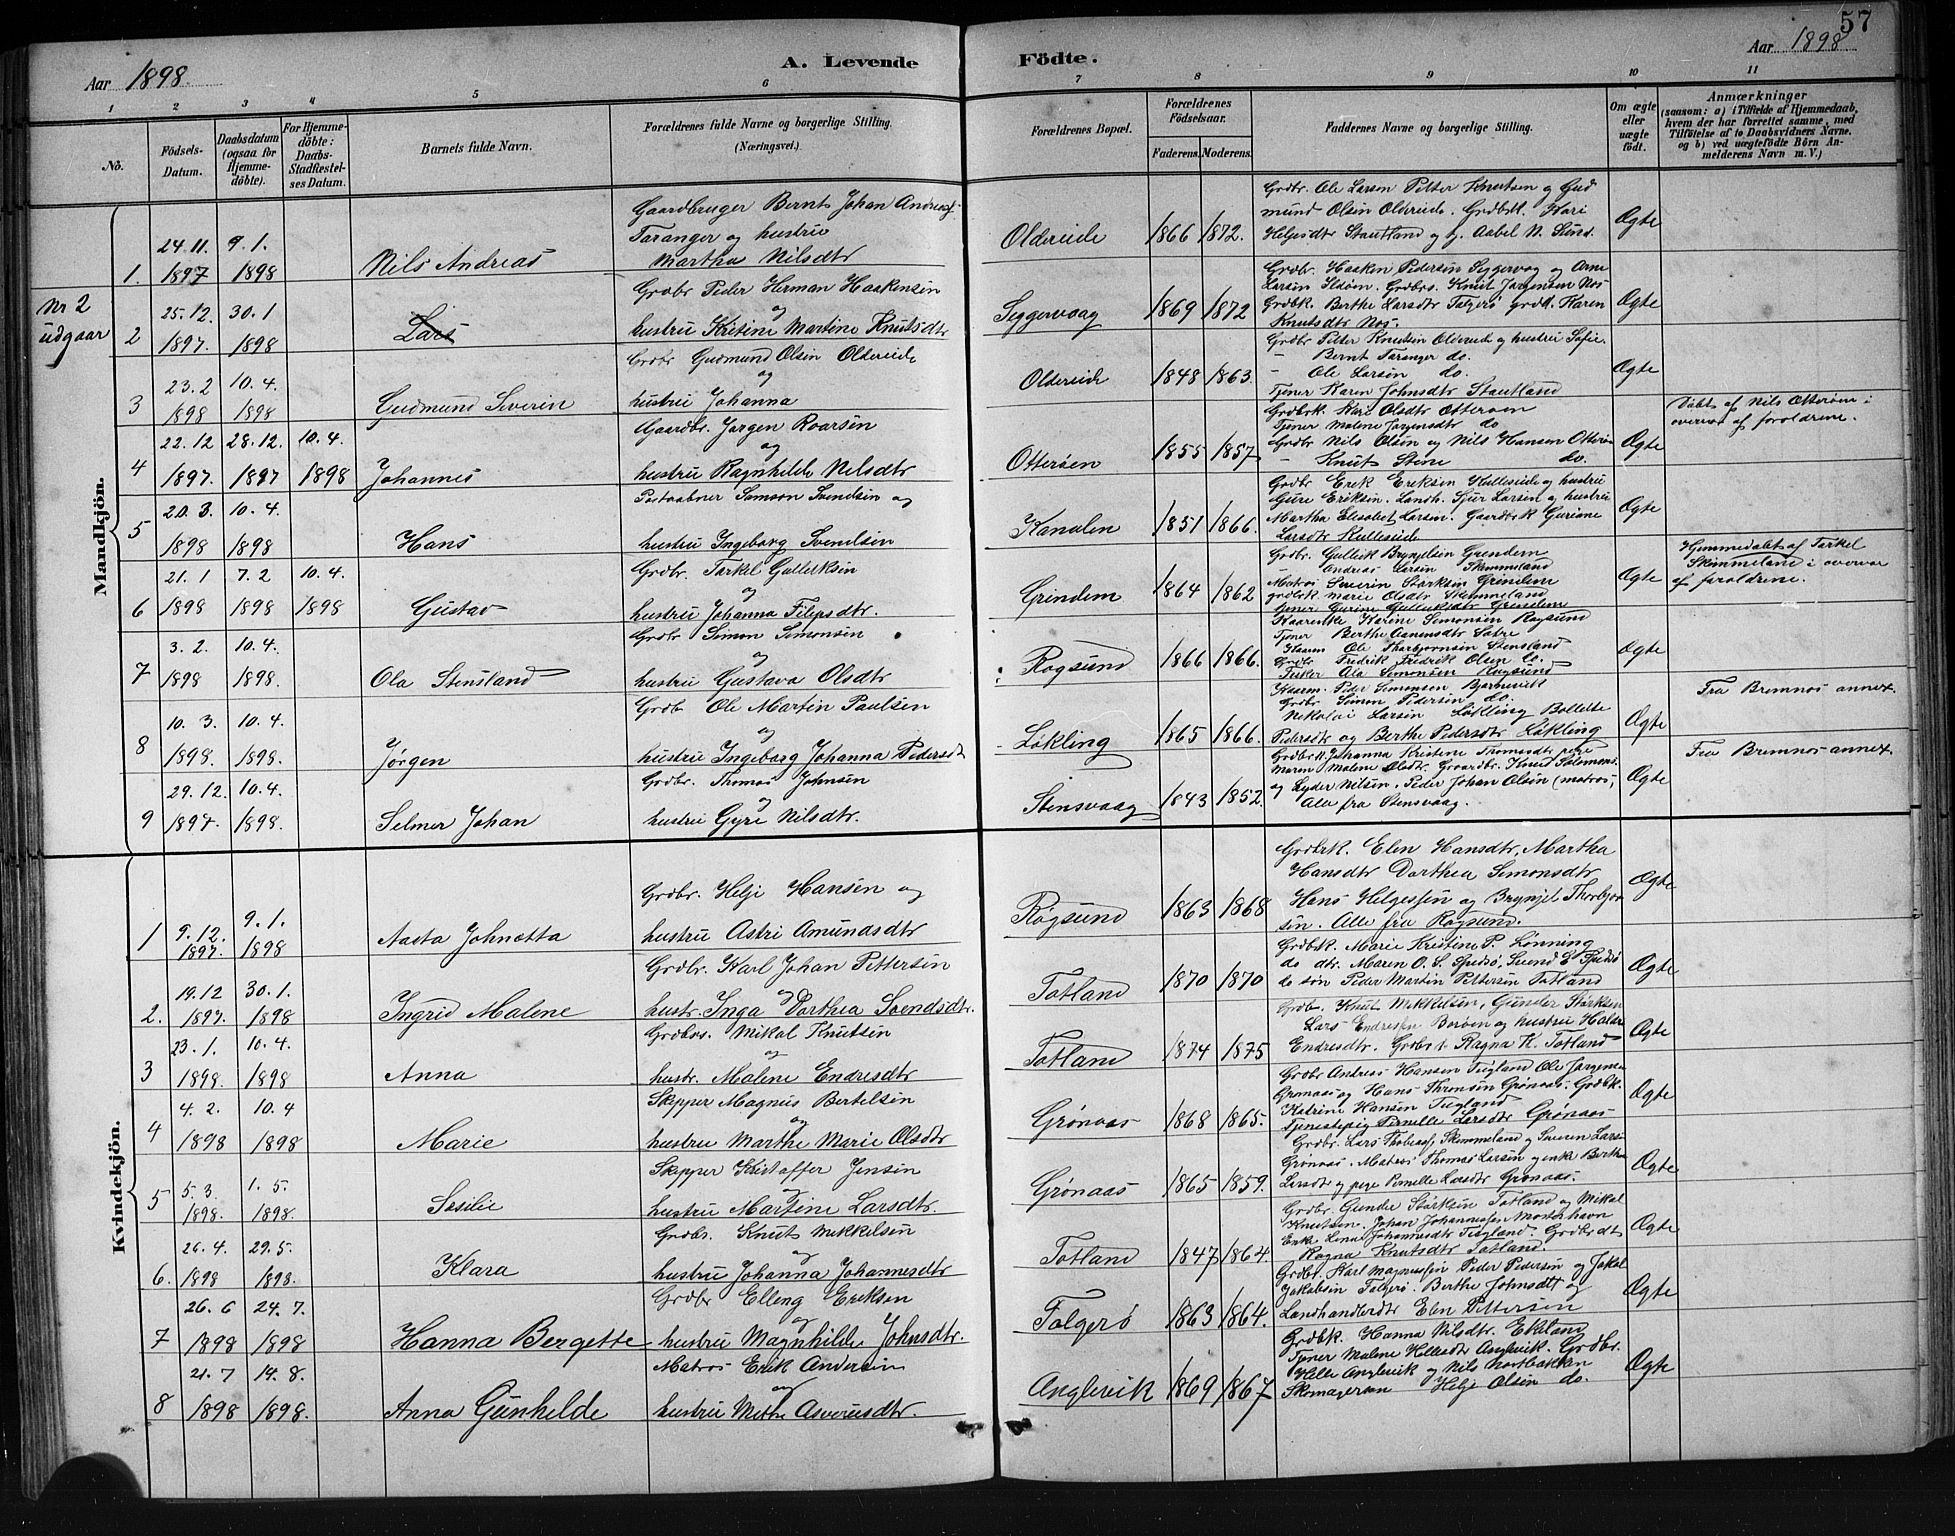 57
Aar 1898.
A. Levende
Födte.
Aar 1898
1 2 3 4 5 6 7 8 9 10 11
No.
Födsels-Datum.
Daabsdatum (ogsaa for Hjemmedöbte).
For Hjemmedöbte: Daabs-Stadfæstelses Datum.
Barnets fulde Navn.
Forældrenes fulde Navne og borgerlige Stilling.
(Næringsvei.)
Forældrenes Bopæl.
Forældrenes Födselsaar.
Faderens. Moderens.
Faddernes Navne og borgerlige Stilling.
Om ægte eller uægte födt.
Anmærkninger
(saasom: a) i Tilfælde af Hjemmedaab, hvem der har forrettet samme, med Tilföielse af to Daabsvidners Navne. og b) ved uægtefödte Börn Anmelderens Navn m. V.)
Mandkjön.
1. 24.11. 1897 9.1. 1898 Nils Andreas
Gaardbruger Bernt Johan Andreas
Taranger og hustru
Martha Nilsdtr
Oldereide 1866 1872.
Grdbr. Ole Larsen Petter Knutsen og Gud
mund Olsen Oldereide. Kari
Helgesdtr Stautland
Ægte
Nr 2 udgaar
2 25.12. 1897. 30.1 1898 Lars
Grdbr Peder Herman Haakensen
og
hustru Kristine Martine Knutsdtr
Seggervaag 1869 1872
Grdbr. Haaken Pedersen Seggervaag og Arne
Larsen Knut Jørgensen
Berthe Larsdt Folgerø Karen
Knutsdtr
Ægte
3 23.2 1898 10.4. 1898 Gudmund Severin
Grdbr Gudmund Olsen Oldereide
og
hustru Johanna
Oldereide 1848 1863.
Grdbr Petter Knutsen Oldereide og hustru Sofie.
- Bernt Taranger do.
- Ole Larsen do.
Tjener Karen Johnsdtr Stautland
Ægte
4 22.12 1897. 28.12. 1897 10.4. 1898 Johannes
Gaardbr. Jørgen Roarsen
og
hustru Ragnhilde Nilsdtr
Ottersen 1855 1857
Grdbrk. Kari Olsdtr
Tjener Malene Jørgensdtr do
Grdbr Nils Olsen og Nils Hansen
- Knut Stene do.
Ægte
Døbt af Nils Otterøen i
overvær af forældrene.
5 20.3. 1898 10.4. 1898 Hans
Postaabner Samson Svendsen og
hustru Ingeborg Svendsen
Kanalen 1851 1866.
Grdbr Erik Eriksen Kulleseide og hustru
Gure Eriksen. Landh. Sjur Larsen og hustru
Martha Elisabet Larsen. Gaardbrk Guriane
Larsdtr Kulleseide
Ægte
6 21.1 1898 7.2 1898 10.4. 1898 Gustav
Grdbr. Tarkel Gulleiksen
og
hustru Johanna Filipsdtr.
Grindem 1864 1862
Grdbr. Gulleik Brynjelsen Grendem
Andreas Larsen Skimmeland
Matros Severin Størksen Grindem
grdbrk Marie Olsdtr Skemmeland
Tjener Gurine Gulleiksdtr Grindem
Ægte
Hjemmedøbt af Tarkel
Skimmeland i overvær
af forældrene.
7 3.2. 1898 10.4. 1898. Ola Stensland
Grdbr Simon Simonsen
og
hustru Gustava Olsdtr
Røgsund 1866 1866.
Kaarenke Karine Simonsen Røgsund
Tjener Berthe Aanensdtr Sætre
Ole Tharbjørnsen Stensland
Grdbr Fredrik Fredrik Olsen do.
Fisker Ola Simonsen Røgsund
Ægte
8 10.3. 1898. 10.4. 1898. Jørgen
Grdbr Ole Martin Paulsen
og
hustru Ingeborg Johanna Pedersdt
Løkling 1865 1866.
Peder Simonsen Bjørnevik
Grdbr Simon Pedersen do
Nikolai Larsen Løkling Bollette
Pedersdtr og Berthe Pedersdtr Løkling
Ægte
Fra Bremnes annex.
9 29.12. 1897. 10.4. 1898. Selmer Johan
Grdbr. Thomas Johnsen
og
hustru Gyri Nilsdtr.
Stensvaag 1843 1852.
Grdbrk. Johanna Kristine Thomesdtr pige
Maren Malene Olsdtr. Graardbr. Knut Salomons.
og Lyder Nilsen, Peder Johan Olsen (matros,
Alle fra Stensvaag.
Ægte
Fra Bremnes annex.
Kvindekjön.
1 9.12. 1897. 9.1. 1898 Aasta Johnetta
Grdbr. Helje Hansen og
hustru Astri Amundsdtr
Røgsund 1863 1868
Grdbrk. Elen Hansdtr, Martha
Hansdtr Dorthea Simonsdtr
Hans Helgessen og Brynjel Thorbjørn
sen. Alle fra Røgsund.
Ægte
2. 19.12 1897. 30.1. 1898 Ingrid Malene
Grdbr. Karl Johan Pettersen
og
hustr. Inga Dorthea Svendsdtr.
Totland 1870 1870
Grdbk. Marie Kristine P. Lønning
do dtr. Maren O. S. Spidsø, Svend E Spidsø
do søn Peder Martin Pettersen Totland
Ægte
3 23.1. 1898. 10.4. 1898 Anna
Grdbr. Mikal Knutsen
og
hustr. Malene Endresdtr
Totland 1874 1875
Grdbr. Knut Mikkelsen, Gunder Størksen
Lars Endresen Børøen og hustru
Endresdtr. Ragna K. Totland
Ægte
4 4.2. 1898 10.4 1898 Marie
Skipper Magnus Bertelsen
og
hustru Marthe Marie Olsdtr
Grønaas 1868 1865.
Grdbr Andreas Hansen Tugland Ole Jørgensen
Grønaas og Hans Thronsen Grønaas. Grdbk.
Katrine Hansen Tuglund
Tjenestepig Pernille Larsdtr Grønaas
Ægte
5 5.3. 1898. 1.5. 1898. Sesilie
Skipper Kristoffer Jensen
og
hustru Martine Larsdtr.
Grønaas 1865 1859.
Grdbr. Lars Skimmeland og Severin Larsen
Grønaas. Matros Thomas Larsen og enk Bertha
Larsdt og pige Pernille Larsdt Grønaas.
Ægte
6. 26.4. 1898 29.5. 1898. Klara
Grdbr. Knut Mikkelsen
og
hustru Johanna Johannesdtr
Totland 1847 1864.
Grdbr. Gunder Størksen Totland og Mikal
Knutsen. Johan Johannessen
Enke Lena Johannesdtr Tuglund.
Ragna Knutsdtr Totland.
Ægte
7 26.6 1898 24.7. 1898 Hanna Bergette
Grdbr Elling Eriksen
og
hustru Magnhilde Johnsdtr.
Folgerø 1863 1864.
Grdbr. Karl Magnussen Peder Pedersen og Jakob
Jakobsen Folgerø. Berthe Johnsdtr og
Landhandlerdtr Elen Pettersen
Ægte
8 21.7 1898 14.8. 1898. Anna Gunhilde
Matros Erik Andersen
og
hustru Mette Asverusdtr.
Anglevik 1869 1867
Grdbk. Hanna Nilsdtr. Ekland
Tjener Malene Hellesdtr Anglevik. Grdbr.
Helle Anglevik og Nils Nortbakken
Skomagersøn Helje Olsen do.
Ægte